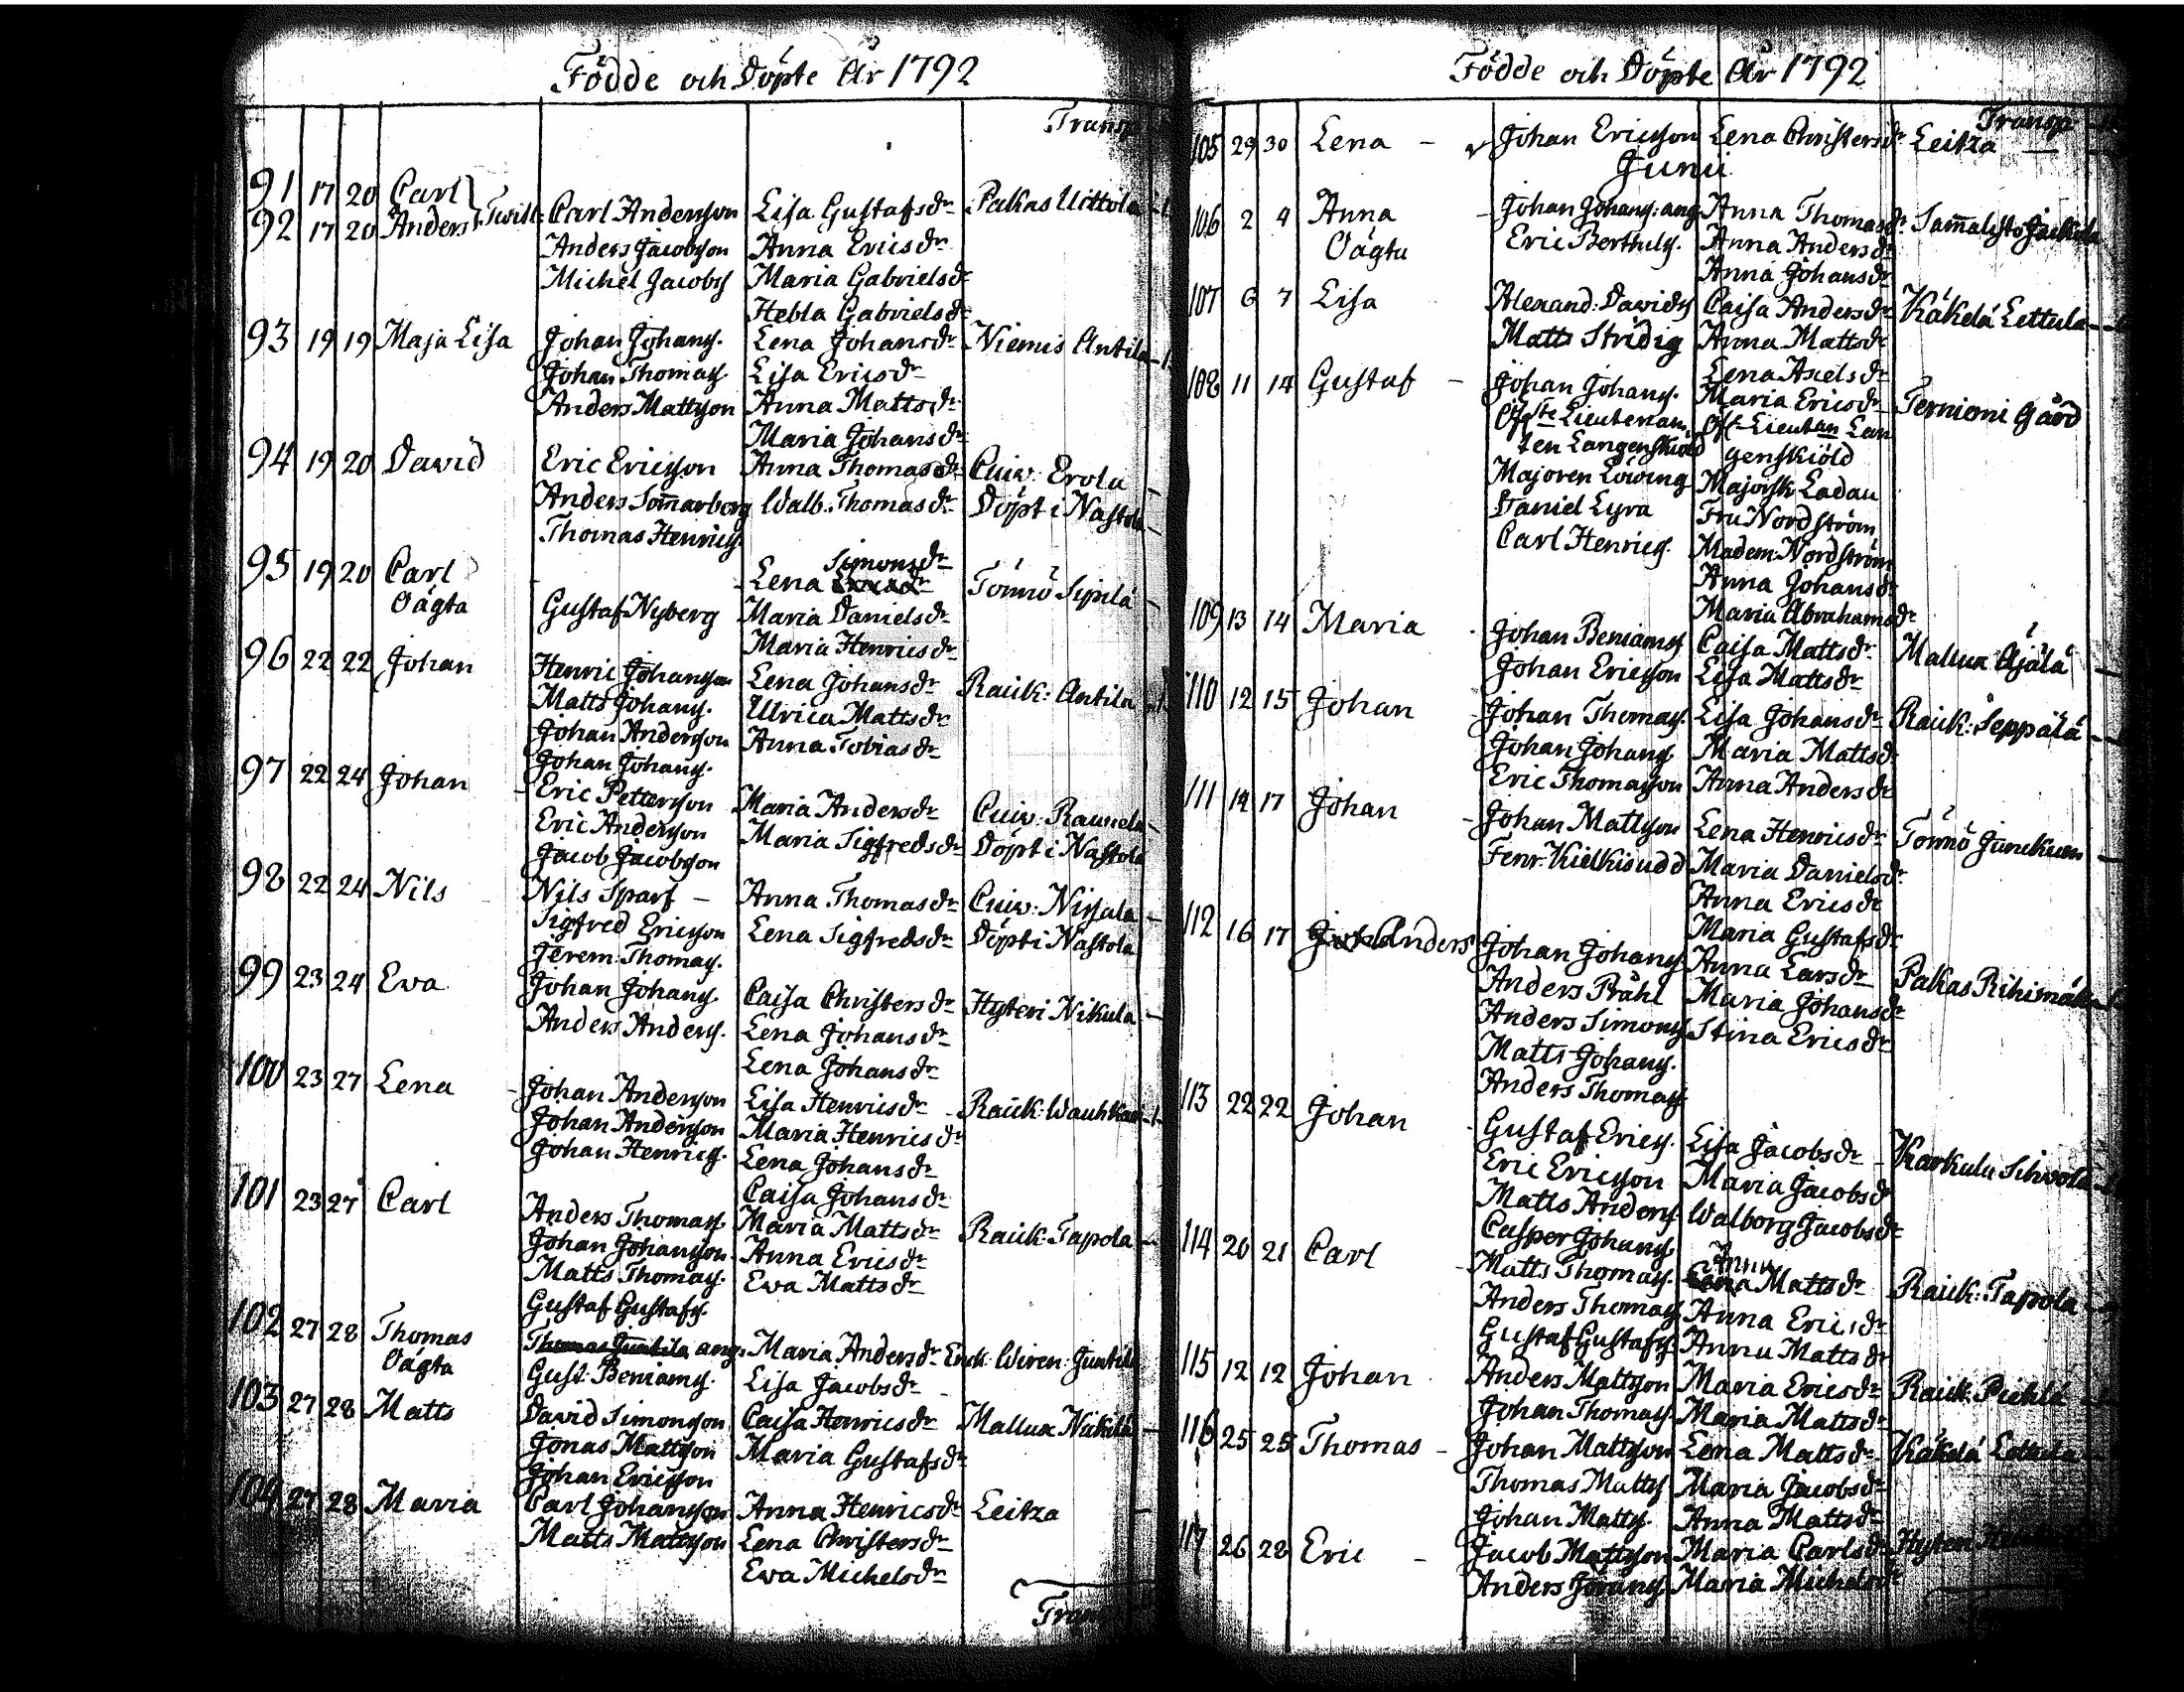 Födde och Döpte År 1792
Transp
91 17 20 Carl
92 17 20 Anders Twill: Carl Andersson Lisa Gustafsdr Pakas Uittola
Anders Jacobsson Anna Ericsdr
Michel Jacobs Maria Gabrielsdr
Hebla Gabrielsdr
93 19 19 Maja Lisa Johan Johans. Lena Johansdr Niemis Antila
Johan Thomas. Lisa Ericsdr
Anders Mattsson Anna Mattsdr
Maria Johansdr
94 19 20 David Eric Ericsson Anna Thomasdr Cuiv: Erola
Anders Som̄arberg Walb. Thomasdr Döpt i Nastola
Thomas Henrics.
Simonsdr
95 19 20 Carl Lena Tömiö Sipilä
Oägta Gustaf Nyberg Maria Danielsdr
Maria Henricsdr
96 22 22 Johan Henric Johansson Lena Johansdr Rauk: Antila
Matts Johans. Ulrica Mattsdr
Johan Andersson Anna Tobiasdr
Johan Johans.
97 22 24 Johan Eric Pettersson Maria Andersdr Cuiv:
Eric Andersson Maria Sigfredsdr Döpt i Nastola
Jacob Jacobsson
98 22 24 Nils Nils Sparf Anna Thomasdr Cuiv: Nirjala
Sigfred Ericsson Lena Sigfredsdr Döpt i Nastola
Jerem: Thomas.
99 23 24 Eva Johan Johans. Caisa Christersdr Hyteri Nikula
Anders Anders. Lena Johansdr
Lena Johansdr
100 23 27 Lena Johan Andersson Lisa Henricsdr Rauk:
Johan Andersson Maria Henricsdr
Johan Henrics. Lena Johansdr
Caisa Johansdr
101 23 27 Carl Anders Thomas. Maria Mattsdr Rauk: Tapola
Johan Johansson Anna Ericsdr
Matts Thomas. Ewa Mattsdr
Gustaf Gustafs.
102 27 28 Thomas ang. Maria Andersdr
Oägta Gust: Beniams. Lisa Jacobsdr
103 27 28 Matts David Simonsson Caisa Henricsdr Mallux Nickilä
Jonas Mattsson Maria Gustafsdr
Johan Ericsson
104 27 28 Maria Carl Johansson Anna Henricsdr Leitza
Matts Mattsson Lena Christersdr
Ewa Michelsdr
Födde och Döpte År 1792
Transp
105 29 30 Lena Johan Ericsson Lena Christersdr Leitza
Junii
106 2 4 Anna Johan Johans: ang Anna Thomasdr Sam̄alisto
Oägta Eric Berthils. Anna Andersdr
Anna Johansdr
107 6 7 Lisa Alexand: Davids Caisa Andersdr Käkelä Lettula
Matts Stridig Anna Mattsdr
Lena Axelsdr
108 11 14 Gustaf Johan Johans. Maria Ericsdr Terniemi Gård
Öfste Lieutenan Öf-Lieutan Lan
ten Langenskiöld genskiöld
Majoren Löwing Majorsk Ladau
Daniel Lyra Fru Nordström
Carl Henrics. Madem: Nordström
Anna Johansdr
Maria Abrahamsdr
109 13 14 Maria Johan Beniams Caisa Mattsdr Mallux Äjälä
Johan Ericsson Lisa Mattsdr
110 12 15 Johan Johan Thomas. Lisa Johansdr Rauk: Seppälä
Johan Johans. Maria Mattsdr
Eric Thomasson Anna Andersdr
111 14 17 Johan Johan Mattsson Lena Henricsdr Tömiö
Fenr: Kielkisudd Maria Danielsdr
Anna Ericsdr
Maria Gustafsdr
112 16 17 Anders Johan Johans Anna Larsdr Pakas Rihimäki
Anders Pråhl Maria Johansdr
Anders Simons. Stina Ericsdr
Matts Johans.
Anders Thomas
113 22 22 Johan Gustaf Erics. Lisa Jacobsdr Karkulu
Eric Ericsson Maria Jacobsdr
Matts Anders. Walborg Jacobsdr
Casper Johans.
Anna
114 20 21 Carl Matts Thomas. Mattsdr Rauk: Tapola
Anders Thomas Anna Ericsdr
Gustaf Gustafs. Anna Mattsdr
115 12 12 Johan Anders Mattsson Maria Ericsdr Rauk:
Johan Thomas. Maria Mattsdr
116 25 25 Thomas Johan Mattsson Lena Mattsdr Käkelä Lettula
Thomas Matts Maria Jacobsdr
Johan Matts. Anna Mattsdr
117 26 28 Eric Jacob Mattsson Maria Carlsdr Hyteri
Anders Jörans. Maria Michelsdr